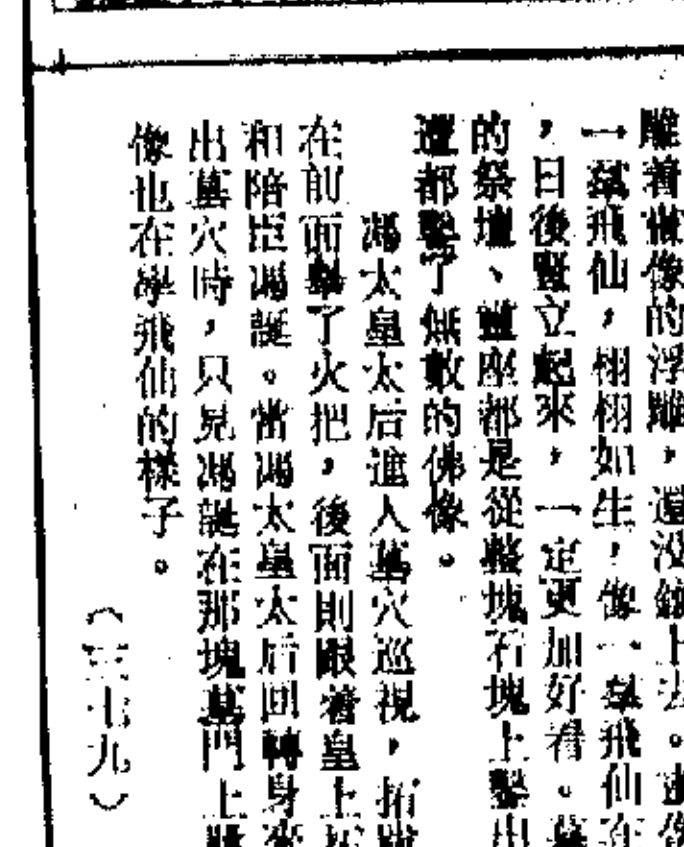 雕着佛像的浮雕，還没鑲上去。這像
一羣飛仙，栩栩如生，像一羣飛仙在
，日後豎立起來，一定更加好看。墓
的祭壇、靈座都是從整塊石塊上鑿出
遭都鑿了無數的佛像。
馮太皇太后進入墓穴巡視，拓跋
在前面擧了火把，後面則跟着皇上
和陪臣馮誕。當馮太皇太后回轉身來
出墓穴時，只見馮誕在那塊墓門上
像也在學飛仙的樣子。
（三七九）